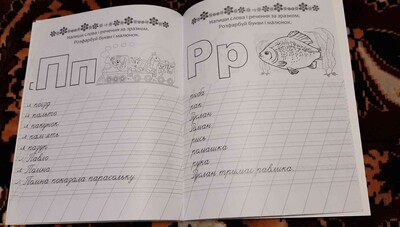 Напиши слова і речення за зразком.
Розфарбуй букви і малюнок.
Пп
папір
пальто
пакунок
пам'ять
павук
Павло
Поліна
Поліна показала парасольку.
Напиши слова і речення за зразком.
Розфарбуй букви і малюнок.
Рр
риба
рак
Руслан
Роман
рись
ромашка
рука
Руслан тримає равлика.